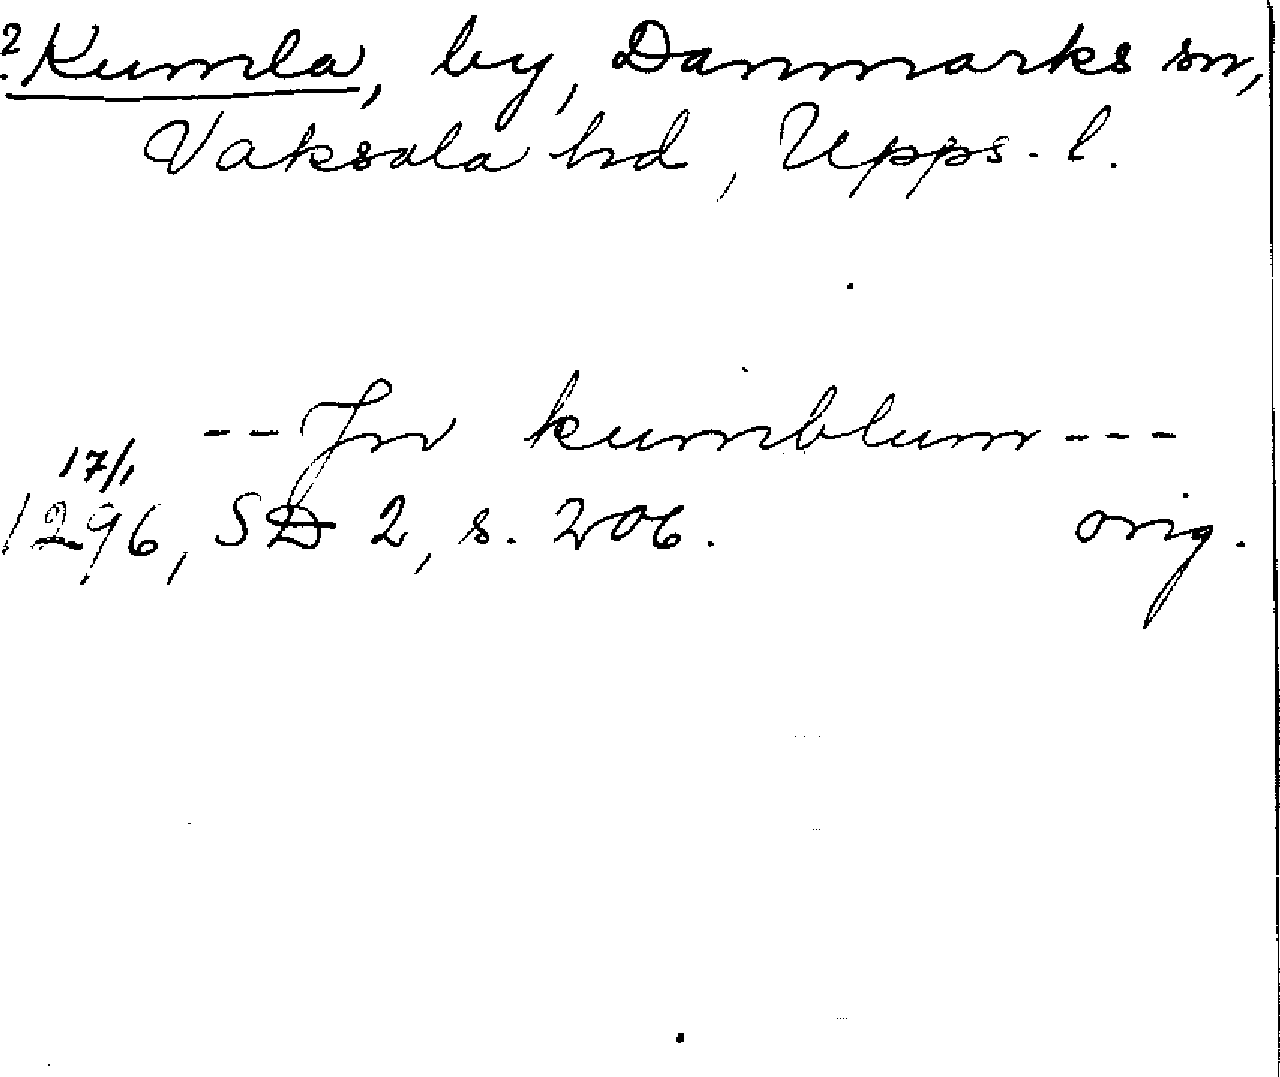 ?Kumla, by, Danmarks sn,
Vaksala hd, Upps. l.
-- Jn kumblum ---
17/1
1296, SD 2, s. 206. orig.